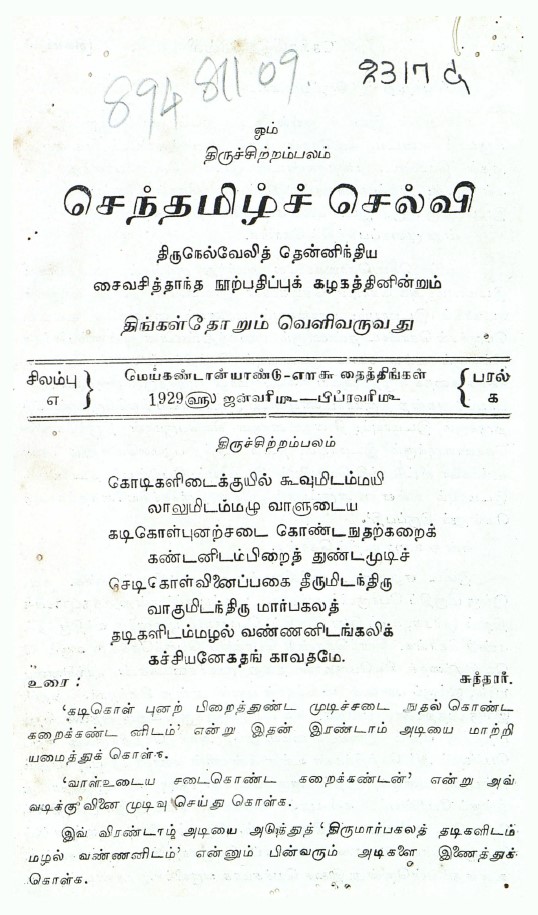 894 811 09.
2317
ஓம்
திருச்சிற்றம்பலம்
செந்தமிழ்ச் செல்வி
திருநெல்வேலித் தென்னிந்திய
சைவசித்தாந்த நூற்பதிப்புக் கழகத்தினின்றும்
திங்கள்தோறும் வெளிவருவது
சிலம்பு
எ
மெய்கண்டான்யாண்டு-எாகூ தைத்திங்கள்
1929௵ ஜன்வரி௴—பிப்ரவரி௴
பரல்
க
திருச்சிற்றம்பலம்
கோடிகளிடைக்குயில் கூவுமிடம்மயி
லாலுமிடம்மழு வாளுடைய
கடிகொள்புனற்சடை கொண்டநுதற்கறைக்
கண்டனிடம்பிறைத் துண்டமுடிச்
செடிகொள்வினைப்பகை தீருமிடந்திரு
வாகுமிடந்திரு மார்பகலத்
தடிகளிடம்மழல் வண்ணனிடங்கலிக்
கச்சியனேகதங் காவதமே.
உரை :
சுந்தரர்.
‘கடிகொள் புனற் பிறைத்துண்ட முடிச்சடை நுதல் கொண்ட
கறைக்கண்ட னிடம்’ என்று இதன் இரண்டாம் அடியை மாற்றி
யமைத்துக் கொள்க.
‘வாள்உடைய சடைகொண்ட கறைக்கண்டன்’ என்று அவ்
வடிக்கு வினை முடிவு செய்து கொள்க.
இவ் விரண்டாம் அடியை அடுத்துத் ‘திருமார்பகலத் தடிகளிடம்
மழல் வண்ணனிடம்’ என்னும் பின்வரும் அடிகளை இணைத்துக்
கொள்க.